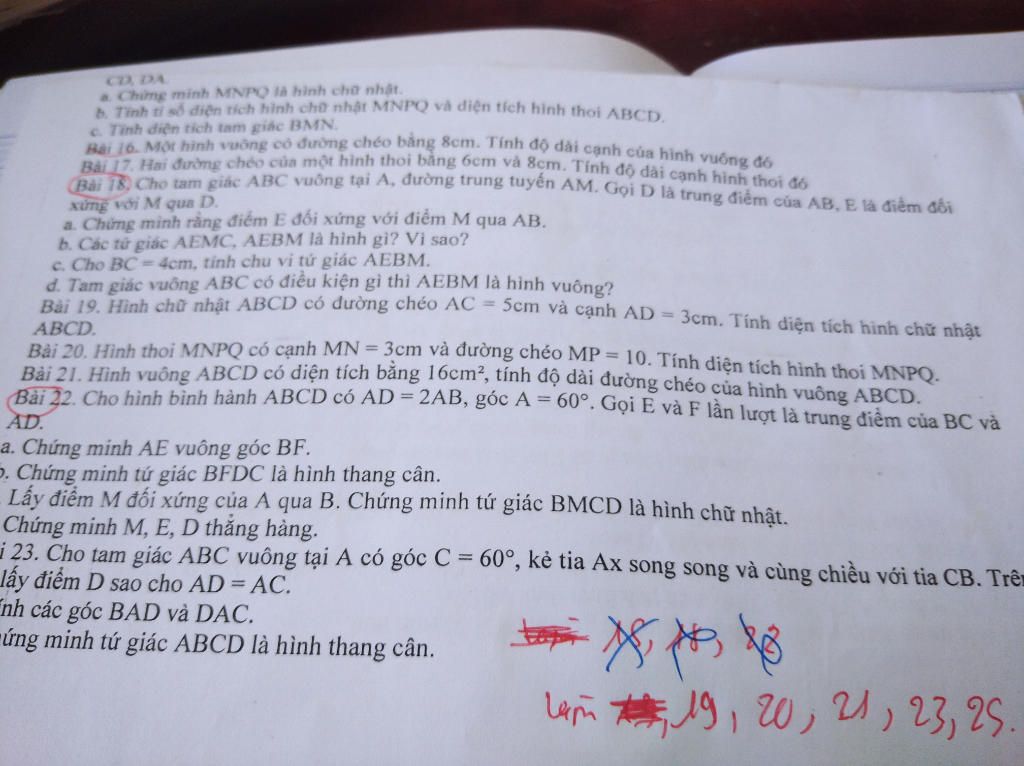 CD, DA.
a. Chứng minh MNPQ là hình chữ nhật.
b. Tính tỉ số diện tích hình chữ nhật MNPQ và diện tích hình thoi ABCD.
c. Tính diện tích tam giác BMN.
Bài 16. Một hình vuông có đường chéo bằng 8cm. Tính độ dài cạnh của hình vuông đó
Bài 17. Hai đường chéo của một hình thoi bằng 6cm và 8cm. Tính độ dài cạnh hình thoi đó
Bài 18. Cho tam giác ABC vuông tại A, đường trung tuyến AM. Gọi D là trung điểm của AB, E là điểm đối
xứng với M qua D.
a. Chứng minh rằng điểm E đối xứng với điểm M qua AB.
b. Các tứ giác AEMC, AEBM là hình gì? Vì sao?
c. Cho BC = 4cm, tính chu vi tứ giác AEBM.
d. Tam giác vuông ABC có điều kiện gì thì AEBM là hình vuông?
Bài 19. Hình chữ nhật ABCD có đường chéo AC = 5cm và cạnh AD = 3cm. Tính diện tích hình chữ nhật
ABCD.
Bài 20. Hình thoi MNPQ có cạnh MN = 3cm và đường chéo MP = 10. Tính diện tích hình thoi MNPQ.
Bài 21. Hình vuông ABCD có diện tích bằng 16cm², tính độ dài đường chéo của hình vuông ABCD.
Bài 22. Cho hình bình hành ABCD có AD = 2AB, góc A = 60°. Gọi E và F lần lượt là trung điểm của BC và
AD.
a. Chứng minh AE vuông góc BF.
b. Chứng minh tứ giác BFDC là hình thang cân.
. Lấy điểm M đối xứng của A qua B. Chứng minh tứ giác BMCD là hình chữ nhật.
Chứng minh M, E, D thẳng hàng.
i 23. Cho tam giác ABC vuông tại A có góc C = 60°, kẻ tia Ax song song và cùng chiều với tia CB. Trên
lấy điểm D sao cho AD = AC.
ính các góc BAD và DAC.
ứng minh tứ giác ABCD là hình thang cân.
, 19, 20, 21, 23, 25.